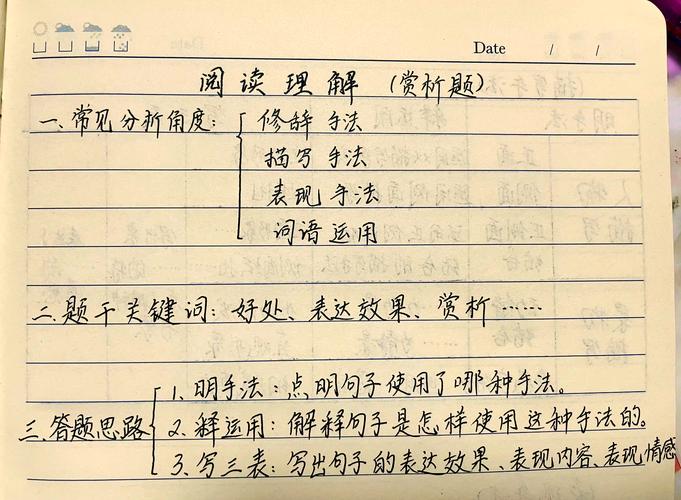 Date / /
阅读理解（赏析题）
一、常见分析角度：修辞手法
描写手法
表现手法
词语运用
二、题干关键词：好处、表达效果、赏析……
三、答题思路
1、明手法：点明句子使用了哪种手法。
2、释运用：解释句子是怎样使用这种手法的。
3、写三表：写出句子的表达效果、表现内容、表现情感